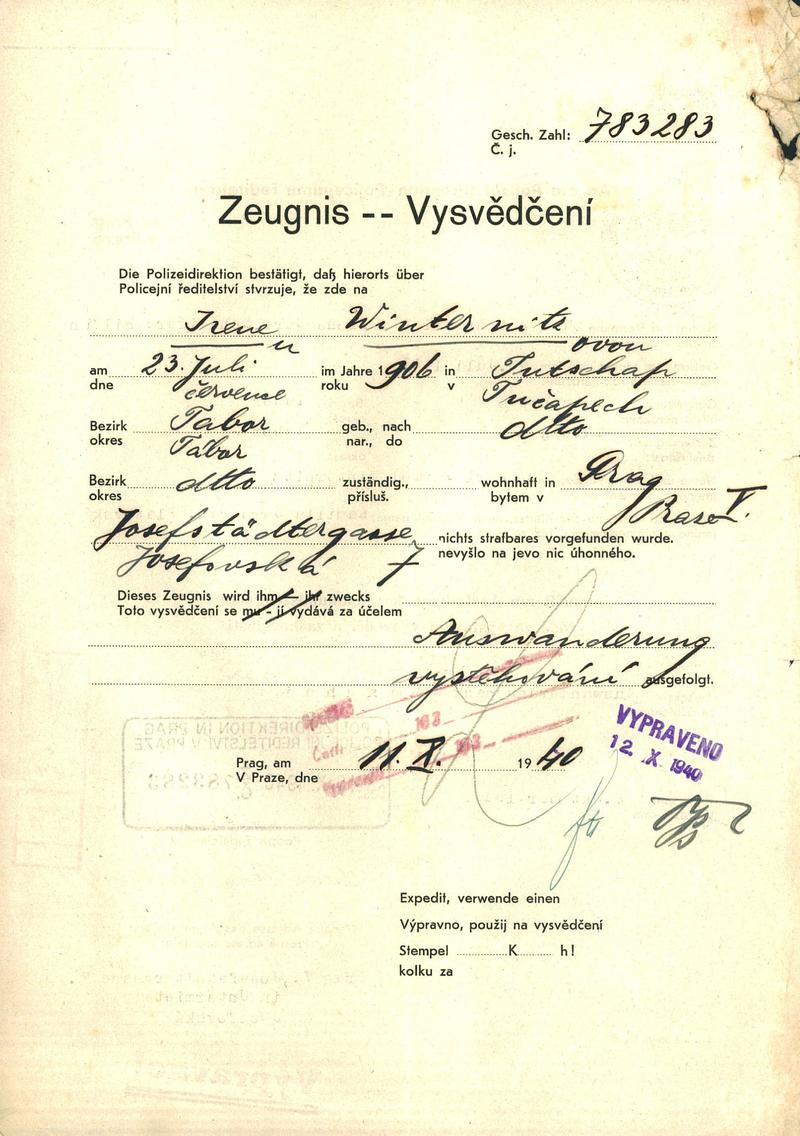 Gesch. Zahl: 783283
Č. j.
Zeugnis -- Vysvědčení
Die Polizeidirektion bestätigt, daß hierorts über
Policejní ředitelství stvrzuje, že zde na
Irene Winternitz
u ovou
am 23. Juli im Jahre 1906 in Tutschap
dne července roku v Tučapech
Bezirk Tabor geb., nach dtto
okres Tábor nar., do
Bezirk dtto zuständig., wohnhaft in Prag
okres přísluš. bytem v Praze V.
Josefstädtergasse nichts strafbares vorgefunden wurde.
Josefovská 7 nevyšlo na jevo nic úhonného.
Dieses Zeugnis wird ihm – ihr zwecks
Toto vysvědčení se mu - jí vydává za účelem
Auswanderung
vystěhování ausgefolgt.
VYPRAVENO
12. X. 1940
Prag, am 11. X. 1940
V Praze, dne
Expedit, verwende einen
Výpravno, použij na vysvědčení
Stempel K h!
kolku za